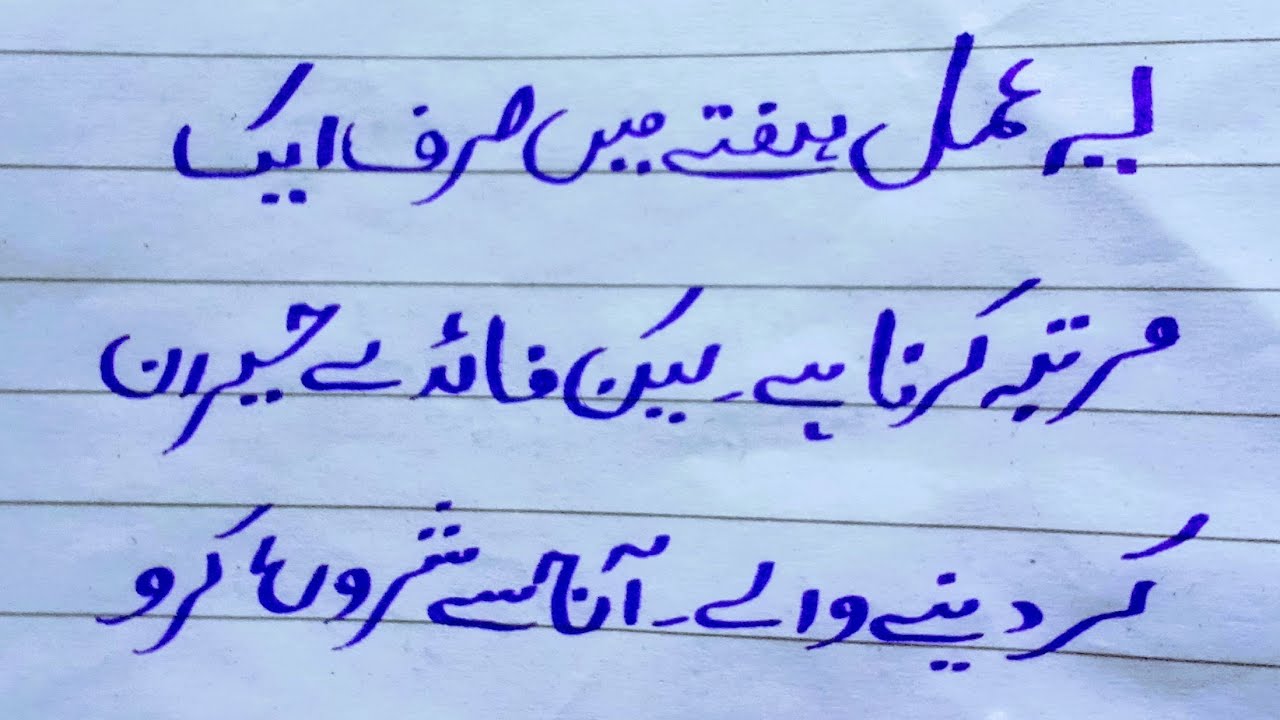 یہ عمل ہفتے میں صرف ایک
مرتبہ کرنا ہے۔ لیکن فائدے حیران
کر دینے والے۔ آج سے شروع کرو